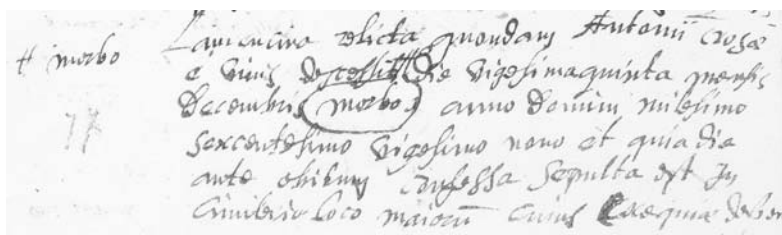 relicta quondam Antonii Crosæ
# morbo
e vivis decessit # die vigesimaquinta mensis
Decembris morbo anno Domini milesimo
17
sexcentesimo vigesimo nono et quia die
ante obitum confessa sepulta est in
Cimiterio loco maiorum cuius exequiæ